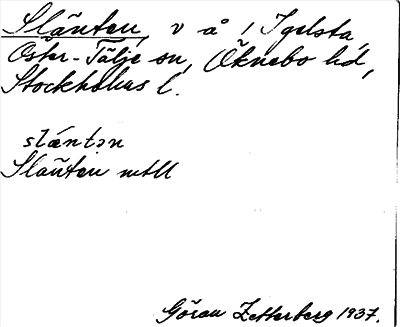 Slänten, v å / Igelsta,
Öster-Tälje sn, Öknebo hd,
Stockholms l.
slæntən
Slänten mtll
Göran Zetterberg 1937.